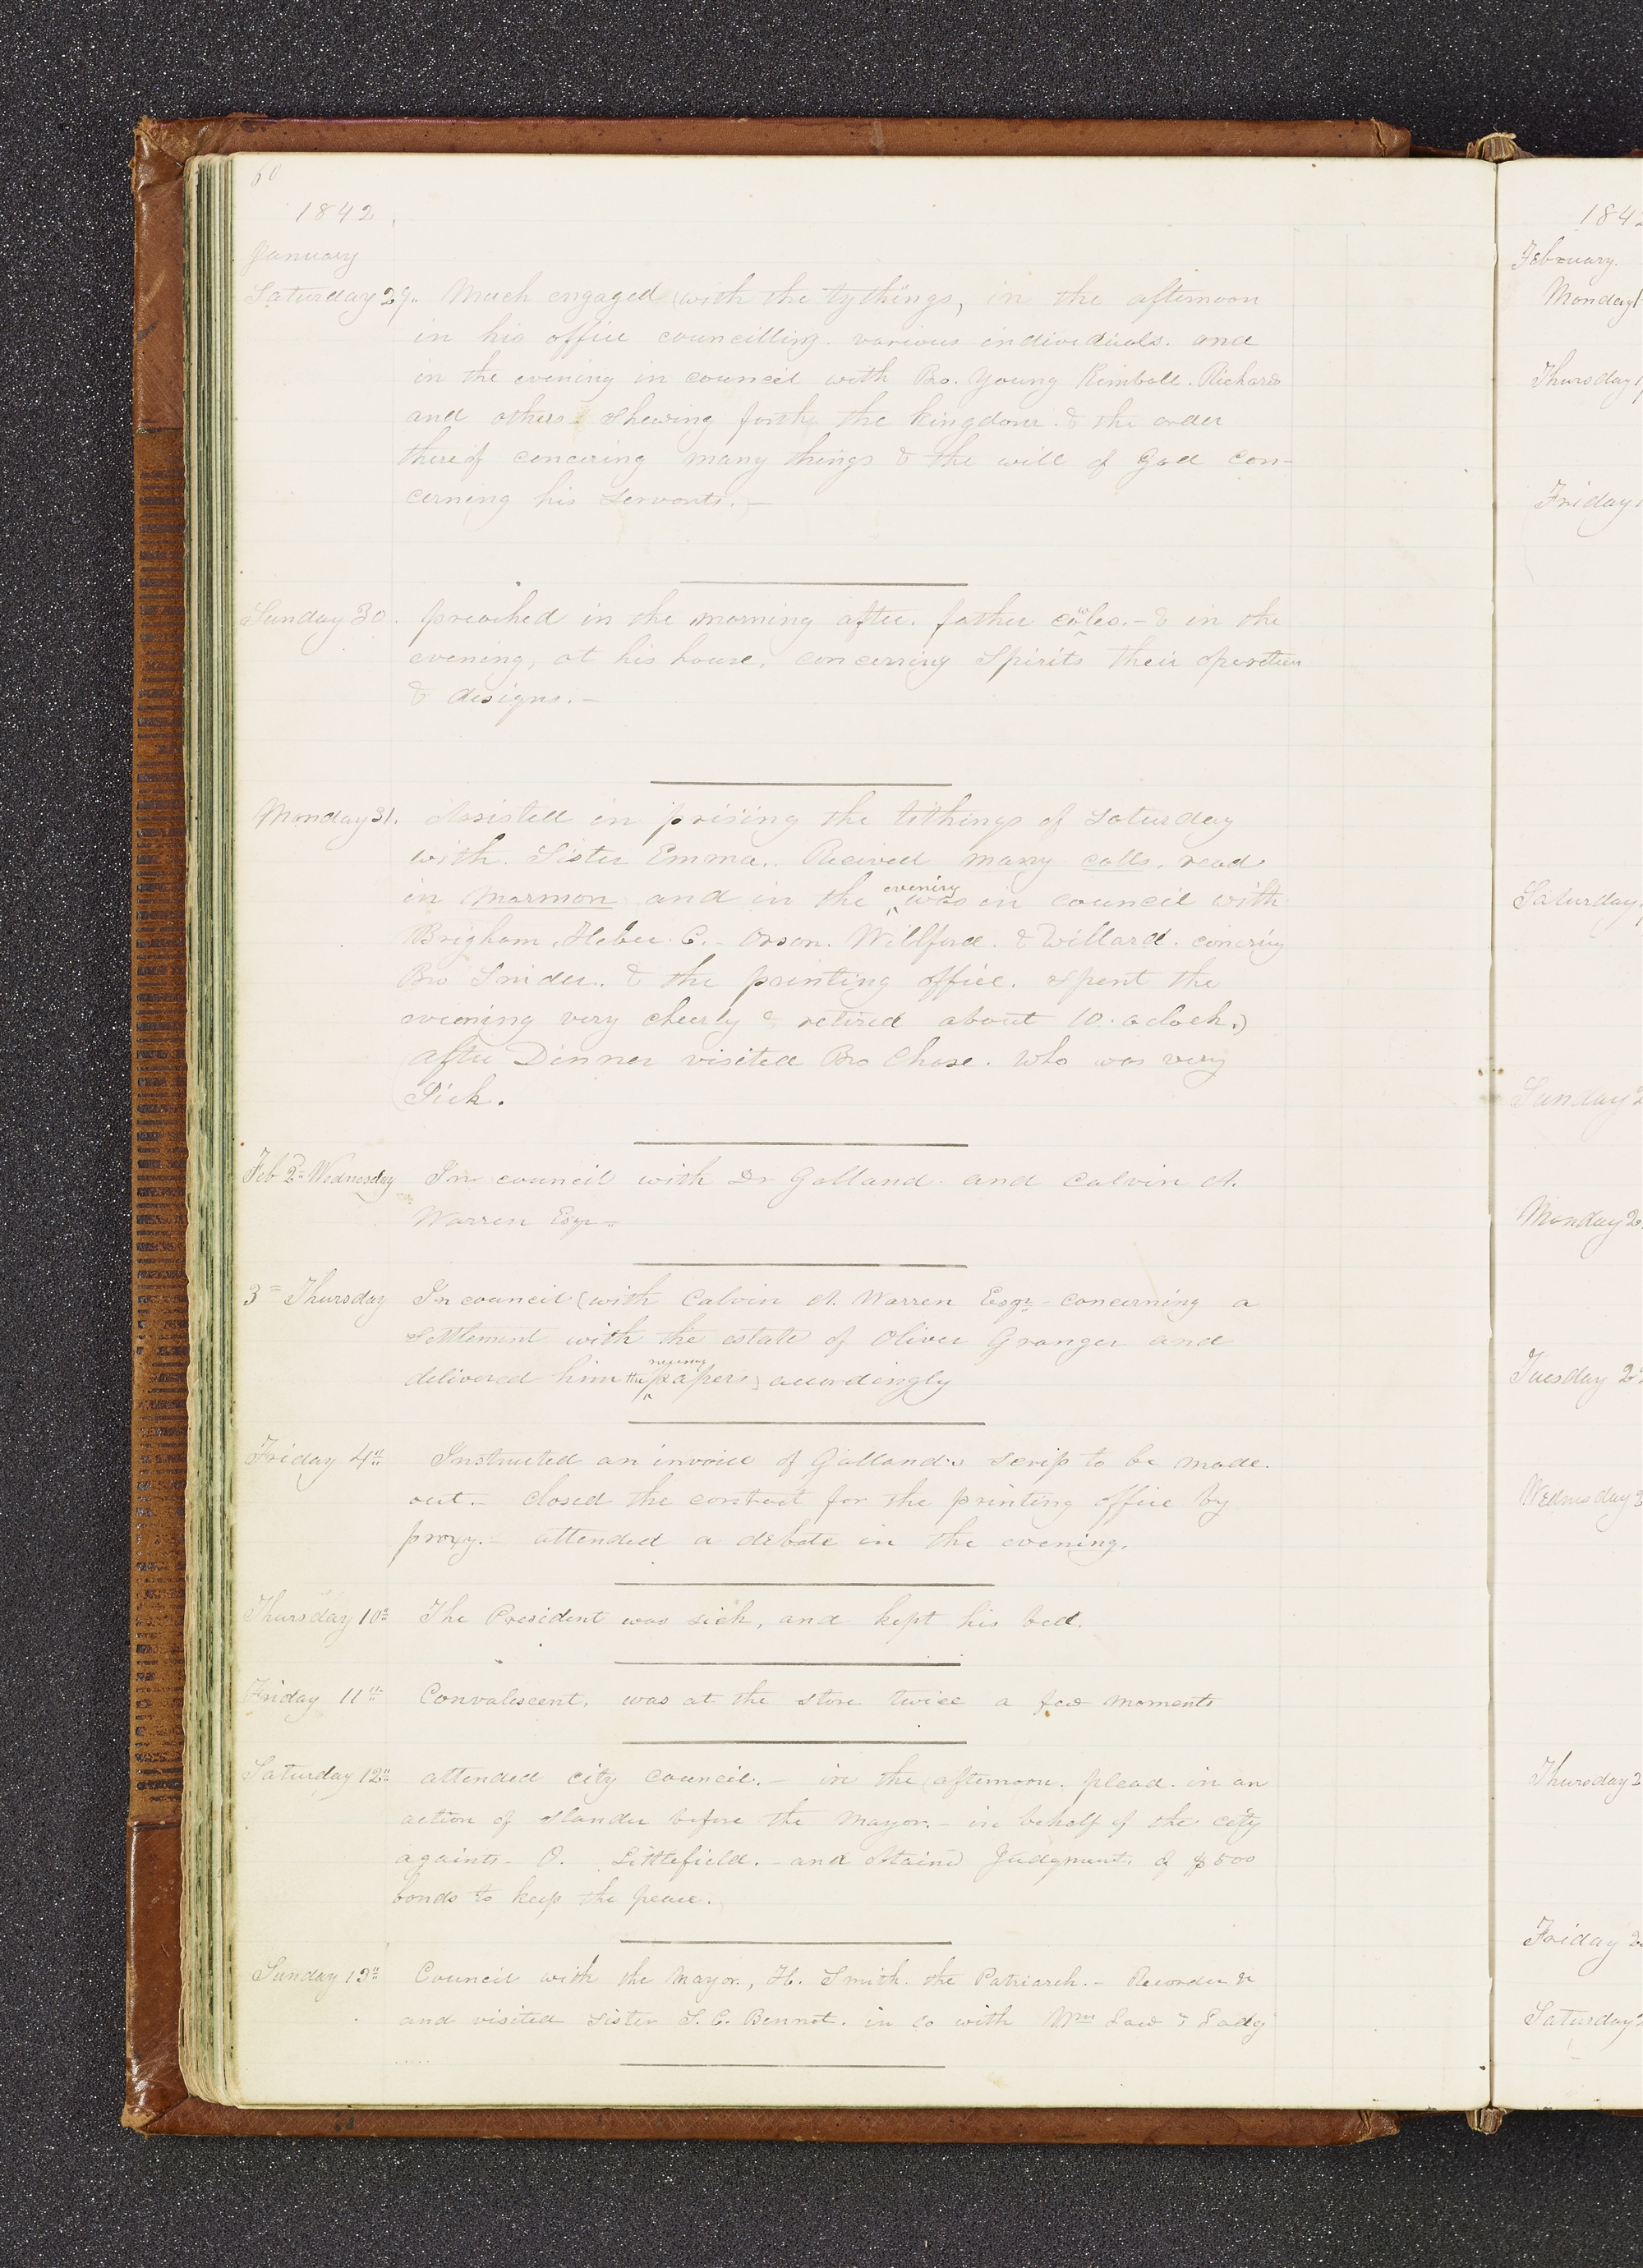 60
1842
January
Saturday 29.. Much engaged with the tythings, in the afternoon
in his office councilling. various individuals. and
in the evening in council with Bro. Young Kimball. Richards
and others. shewing forth the kingdom. & the order
thereof concering many things & the will of God con-
cerning his servants.—
Sunday 30. preached in the morning after. father coles.— & in the
evening, at his house, concerning Spirits their operation
& designs.—
Monday 31. Assisted in prising the tithings of Saturday
with. Sister Emma.. Recived many calls. read
in Mormon and in the evening was in council with
Brigham, Heber. C.– Orson. Willford. & Willard. concering
Bro Snider. & the printing office. spent the
evening very cheerly & retired about 10. oclock.)
(After Dinner visited Bro Chase. who was very
Sick.
Feb 2= Wednesday In council with Dr Galland. and Calvin A.
Warren Esqr—
3= Thursday In council (with Calvin A. Warren Esqr– concerning a
Settlement with the estate of Oliver Granger and
delivered him the necessary papers) accordingly
Friday 4th Instructed an invoice of Gallands scrip to be made.
out.– closed the contract for the printing office by
proxy.– attended a debate in the evening.
Thursday 10= The President was sick, and kept his bed.
Friday 11th Convalescent. was at the store twice a few moments
Saturday 12th attended city council.– in the afternoon. plead. in an
action of slander before the Mayor.– in behalf of the city
againts– O. Littlefield.– and obtaind Judgment. of $500
bonds to keep the peace.
Sunday 13th Council with the Mayor., H. Smith. the Patriarch.– Recorder &c
and visited sister S. C. Bennet. in co with Wm Law & Lady
.....
184
February.
Monday 1
Thursday 1
Friday 1
Saturday
Sunday 2
Monday 2
Tuesday 2
Wednesday 2
Thursday 2
Friday 2
Saturday 2